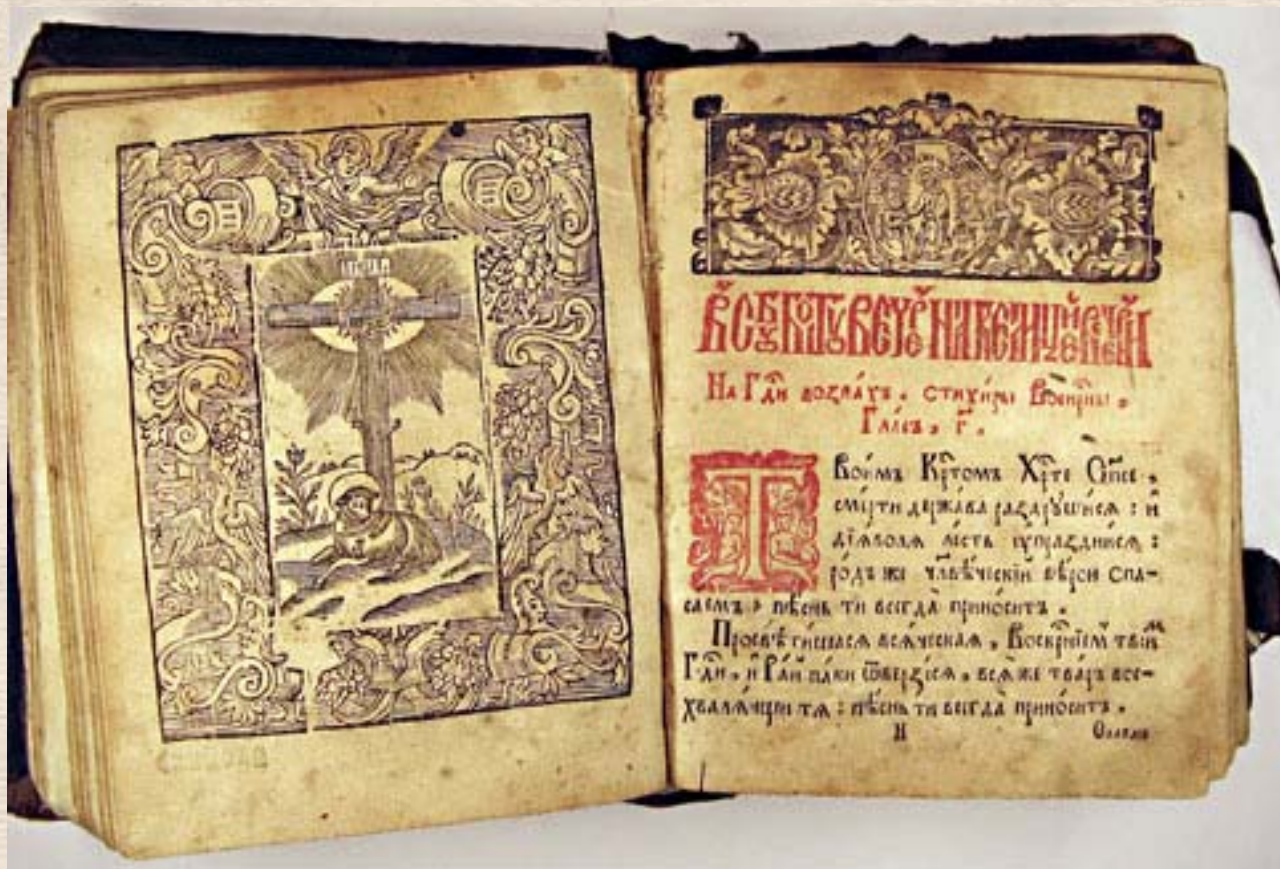 В Сꙋббѡтꙋ Вечер На Велицей вечерни
На Гдⷭ҇и возвахъ. стихиры Воскрⷭ҇ны.
Гласъ. г҃.
Твоимъ Крⷭ҇томъ Хрⷭ҇те Сп҃се.
смерти держава разрꙋшисѧ: и
дїѧволѧ лесть ᲂупразднисѧ:
родъ же чл҃вѣческїи вѣрои спа-
саемъ, пѣснь ти всегда приноситъ.
Просвѣтишасѧ всѧческаѧ, Воскрⷭ҇нїемъ твоимъ
Гдⷭ҇и, и Раи паки ѿверзесѧ, всѧ же тварь все-
хвалѧющи тѧ: пѣснь ти всегда приноситъ.
И